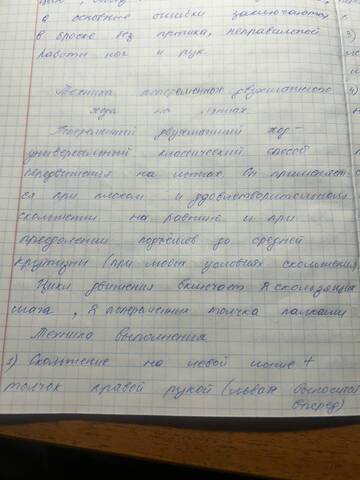 а основные ошибки заключаются
в броске без прыжка, неправильной
работы ног и рук.
Техника попеременного двухшажного
хода на лыжах.
Попеременный двухшажный ход -
универсальный классический способ
передвижения на лыжах. Он применяет-
ся при плохом и удовлетворительном
скольжении на равнине и при
преодолении подъёмов до средней
крутизны (при любых условиях скольжения)
Цикл движения включает 2 скользящих
шага, 2 попеременных толчка палками
Техника выполнения
1) Скольжение на левой лыже +
толчок правой рукой (левая выносится
вперёд)
3)
4)